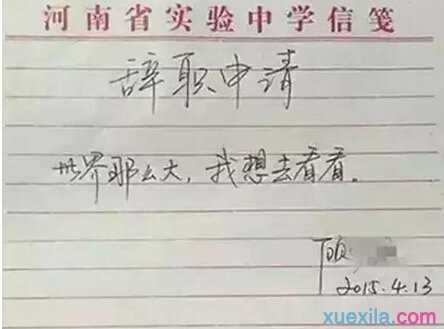 河南省实验中学信笺
辞职申请
世界那么大，我想去看看。
顾
2015.4.13
xuexila.com